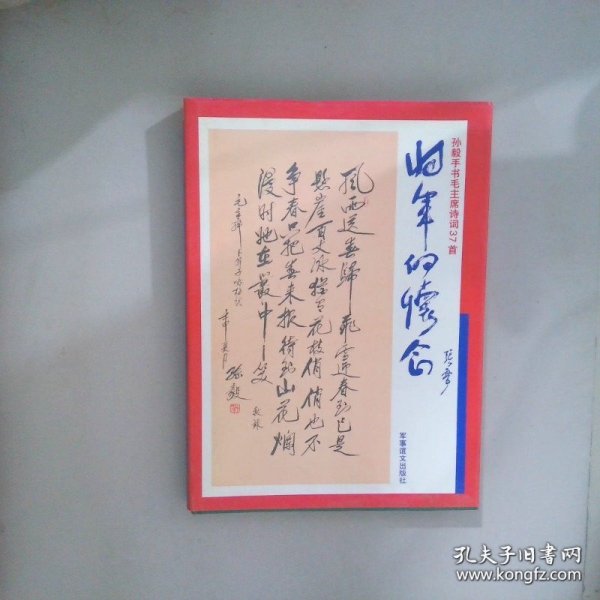 孙毅手书毛主席诗词37首
将军的懷念
風雨送春歸飛雪迎春到已是
懸崖百丈冰猶有花枝俏俏也不
争春只把春来报待到山花爛
漫时她在叢中笑
毛主席卜算子咏梅词
孫毅
敬录
军事谊文出版社
孔夫子旧书网
www.kongfz.com